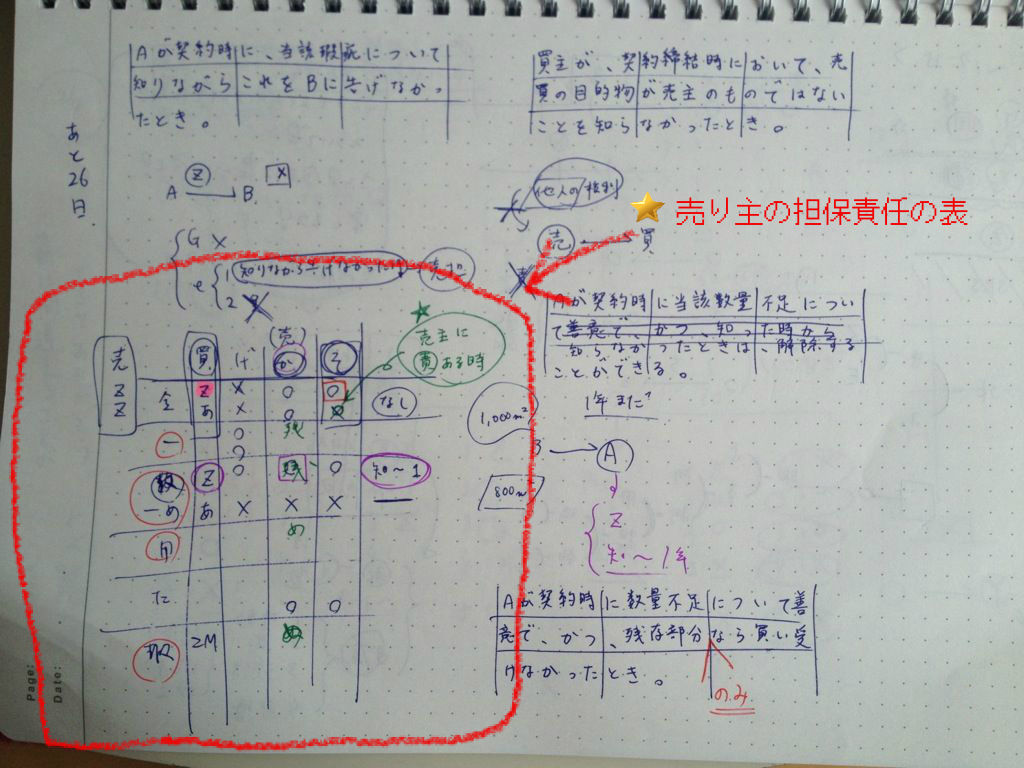 Aが契約時に、当該瑕疵について
知りながらこれをBに告げなかっ
たとき。
買主が、契約締結時において、売
買の目的物が売主のものではない
ことを知らなかったとき。
あと26日
Z
×
A B
他人の権利
売り主の担保責任の表
売 → 買
G ×
e
1 知りながら告げなかった
2
Aが契約時に当該数量不足につい
て善意で、かつ、知った時から
知らなかったときは、解除する
ことができる。
1年まで
売主に
買ある時
(売)
売ZZ
買 げ か そ
全 Z × 0 0 なし
あ × 0
一 0 残
0
数 Z 0 残 0 知〜1
一め あ × × ×
用 め
た 0 0
取 2M め
1,000m²
B → A
800m²
Z
知〜1年
Aが契約時に数量不足について善
意で、かつ、残存部分なら買い受
けなかったとき。
のみ
Page:
Date: